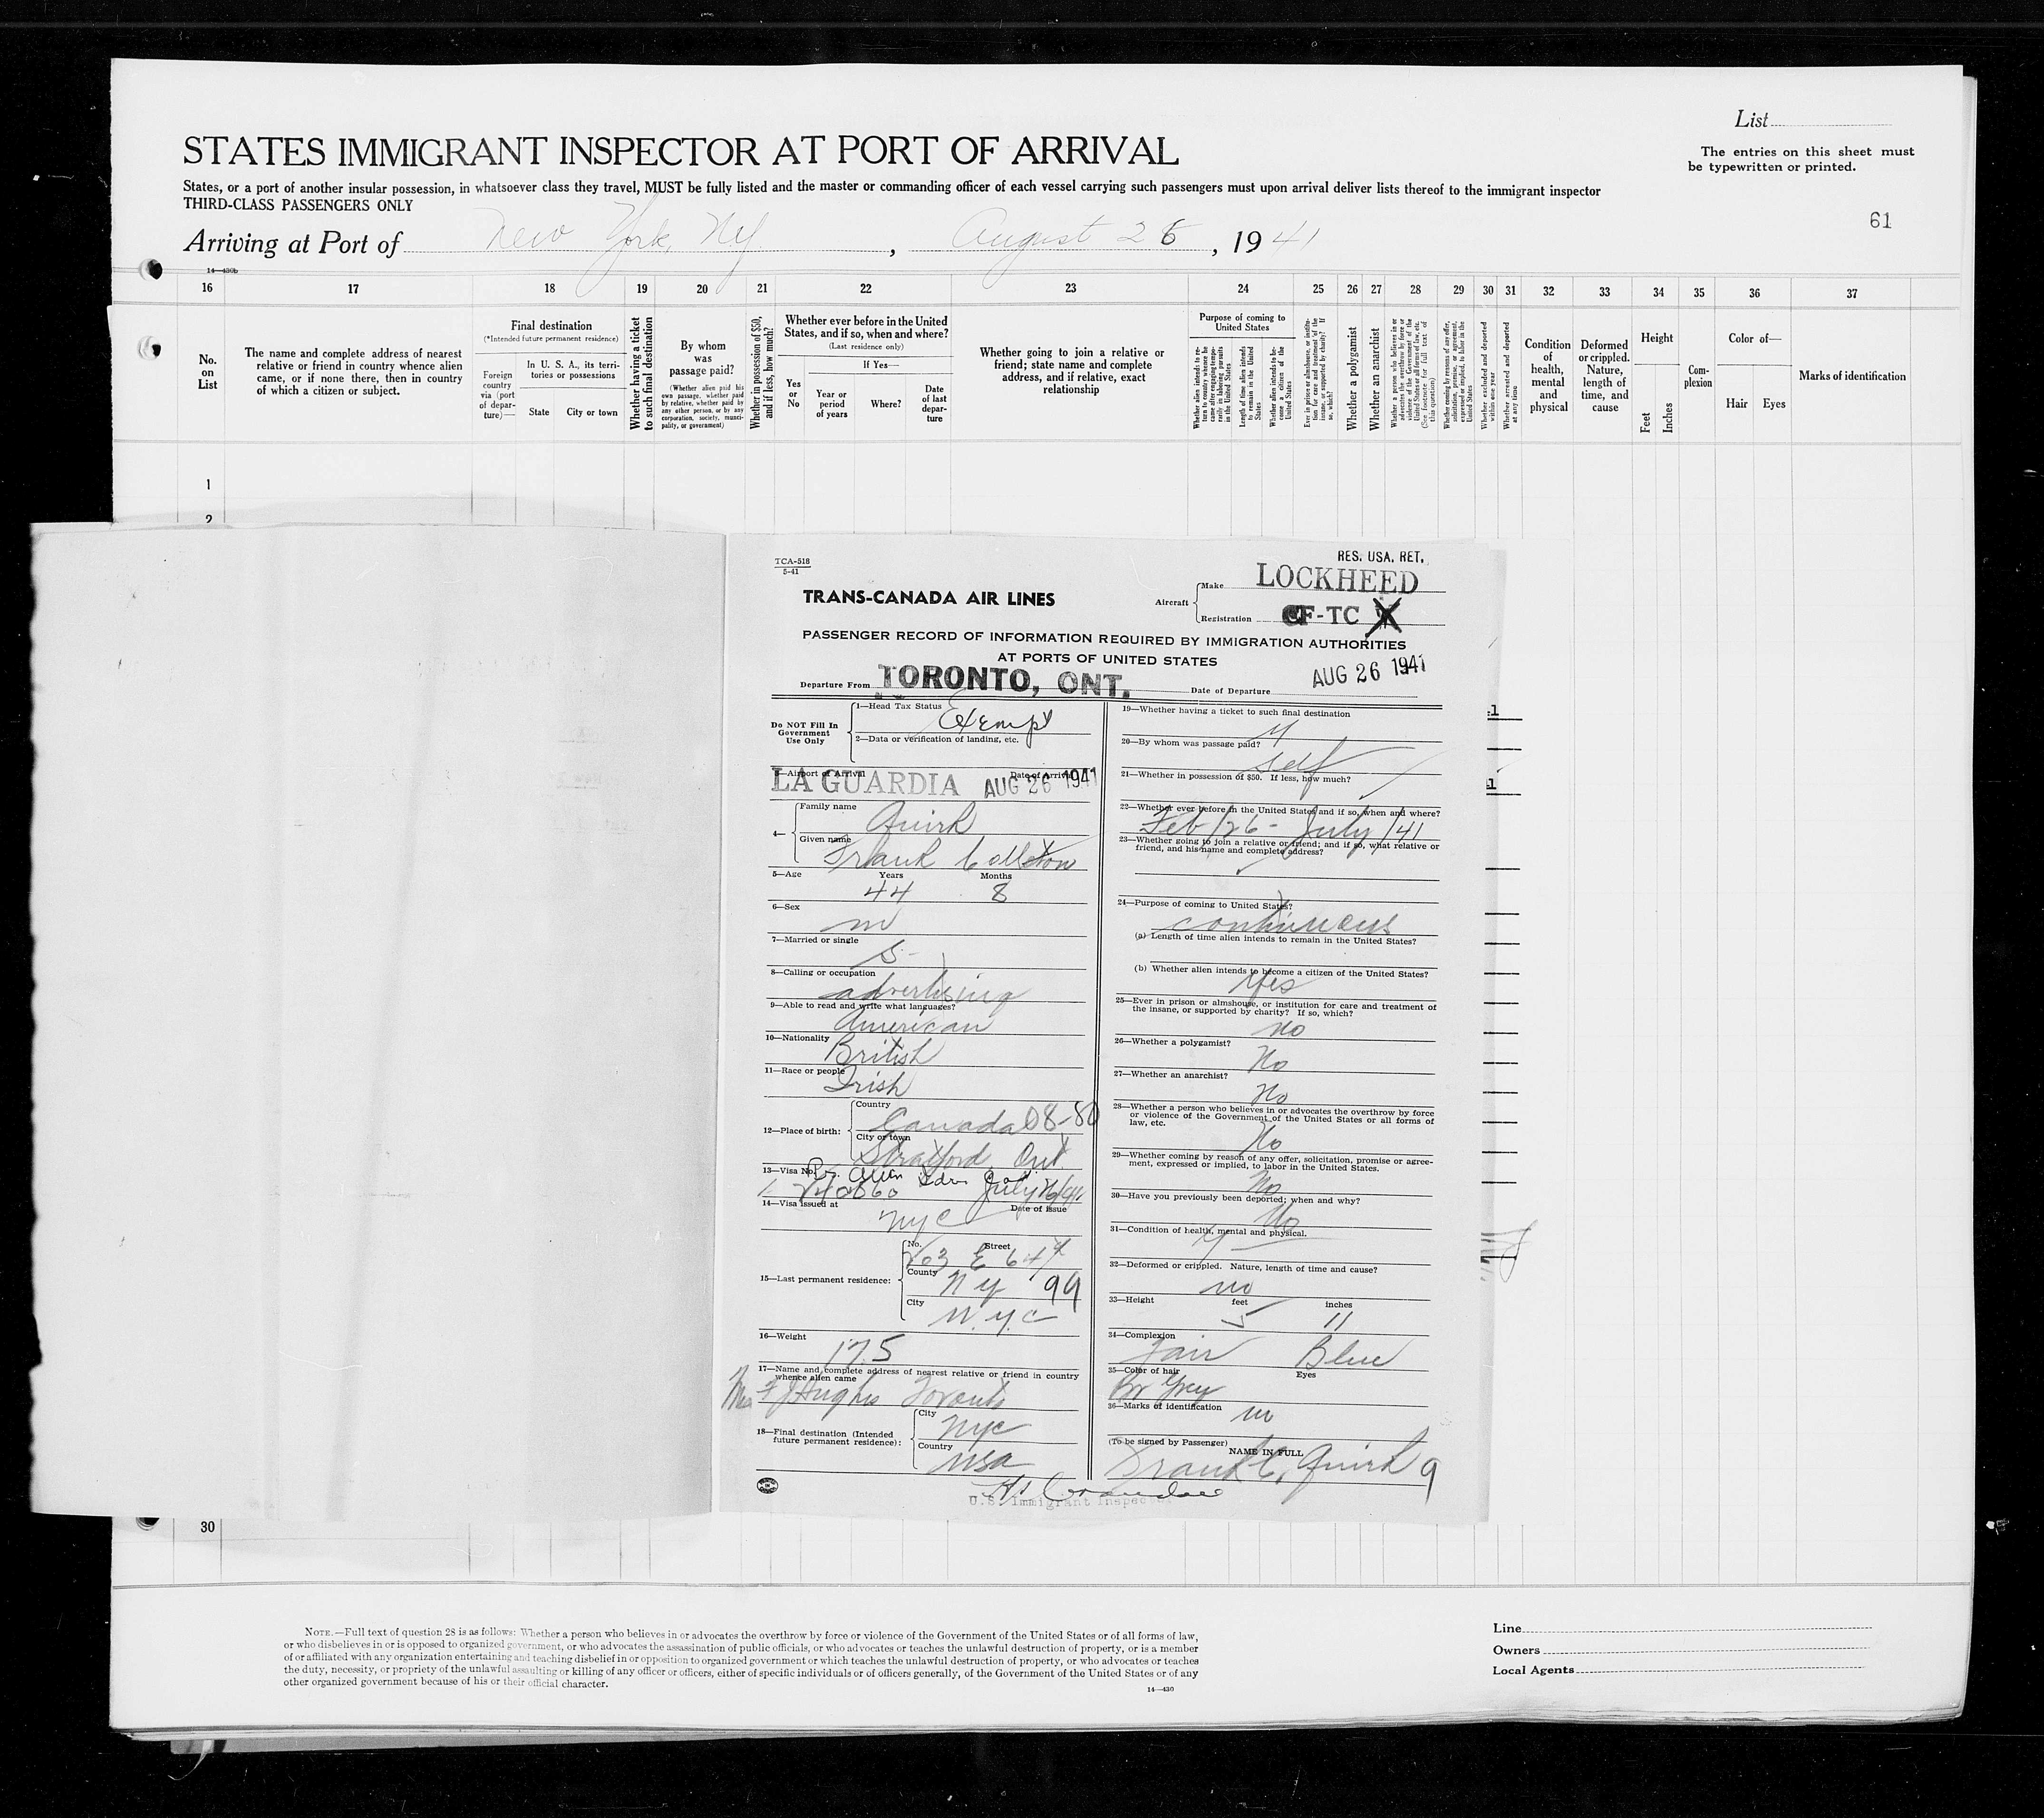 List
STATES IMMIGRANT INSPECTOR AT PORT OF ARRIVAL
The entries on this sheet must
be typewritten or printed.
States, or a port of another insular possession, in whatsoever class they travel, MUST be fully listed and the master or commanding officer of each vessel carrying such passengers must upon arrival deliver lists thereof to the immigrant inspector
THIRD-CLASS PASSENGERS ONLY
61
Arriving at Port of New York, NY. , August 26 , 19 41
14—430b
16 17 18 19 20 21 22 23 24 25 26 27 28 29 30 31 32 33 34 35 36 37
No. on List
The name and complete address of nearest
relative or friend in country whence alien
came, or if none there, then in country
of which a citizen or subject.
Final destination
(*Intended future permanent residence)
Foreign country via (port of departure)—
In U. S. A., its territories or possessions
State
City or town
Whether having a ticket to such final destination
By whom was passage paid?
(Whether alien paid his own passage, whether paid by relative, whether paid by any other person, or by any corporation, society, municipality, or government)
Whether in possession of $50, and if less, how much?
Whether ever before in the United
States, and if so, when and where?
(Last residence only)
Yes or No
If Yes—
Year or period of years
Where?
Date of last departure
Whether going to join a relative or
friend; state name and complete
address, and if relative, exact
relationship
Purpose of coming to
United States
Length of time alien intends to remain in the United States
Whether alien intends to become a citizen of the United States
Whether a polygamist
Whether an anarchist
Whether arrested and deported at any time
Condition of health, mental and physical
Deformed or crippled. Nature, length of time, and cause
Height
Feet
Inches
Complexion
Color of—
Hair
Eyes
Marks of identification
1
2
TCA-518
5-41
RES. USA. RET.
TRANS-CANADA AIR LINES
Aircraft
Make LOCKHEED
Registration CF-TC X
PASSENGER RECORD OF INFORMATION REQUIRED BY IMMIGRATION AUTHORITIES
AT PORTS OF UNITED STATES
Departure From TORONTO, ONT. Date of Departure AUG 26 1941
Do NOT Fill In
Government
Use Only
1—Head Tax Status Exempt
2—Data or verification of landing, etc.
3—Airport of Arrival LA GUARDIA Date of Arrival AUG 26 1941
4— Family name Quirk
Given name Frank Colleton
5—Age Years 44 Months 8
6—Sex m
7—Married or single S
8—Calling or occupation advertising
9—Able to read and write what languages? American
10—Nationality British
11—Race or people Irish
12—Place of birth: Country Canada 08-80
City or town Stratford Ont
13—Visa No. 240860 July 16/41
14—Visa issued at NYC Date of issue
15—Last permanent residence: No. 203 Street E 64
County NY 99
City N.Y.C
16—Weight 175
17—Name and complete address of nearest relative or friend in country
whence alien came
Mrs F J Hughes Toronto
18—Final destination (Intended
future permanent residence): City NYC
Country USA
19—Whether having a ticket to such final destination
Y
20—By whom was passage paid?
self
21—Whether in possession of $50. If less, how much?
22—Whether ever before in the United States and if so, when and where?
Feb/26 - July/41
23—Whether going to join a relative or friend; and if so, what relative or
friend, and his name and complete address?
24—Purpose of coming to United States?
continuous
(a) Length of time alien intends to remain in the United States?
(b) Whether alien intends to become a citizen of the United States?
Yes
25—Ever in prison or almshouse, or institution for care and treatment of
the insane, or supported by charity? If so, which?
no
26—Whether a polygamist?
No
27—Whether an anarchist?
No
28—Whether a person who believes in or advocates the overthrow by force
or violence of the Government of the United States or all forms of
law, etc.
No
29—Whether coming by reason of any offer, solicitation, promise or agree-
ment, expressed or implied, to labor in the United States.
No
30—Have you previously been deported; when and why?
No
31—Condition of health, mental and physical.
32—Deformed or crippled. Nature, length of time and cause?
no
33—Height feet 5 inches 11
34—Complexion Fair Blue
35—Color of hair Br Grey Eyes
36—Marks of identification no
(To be signed by Passenger)
NAME IN FULL
Frank C. Quirk 9
U.S. Immigrant Inspector
30
NOTE.—Full text of question 28 is as follows: Whether a person who believes in or advocates the overthrow by force or violence of the Government of the United States or of all forms of law,
or who disbelieves in or is opposed to organized government, or who advocates the assassination of public officials, or who advocates or teaches the unlawful destruction of property, or is a member
of or affiliated with any organization entertaining and teaching disbelief in or opposition to organized government or which teaches the unlawful destruction of property, or who advocates or teaches
the duty, necessity, or propriety of the unlawful assaulting or killing of any officer or officers, either of specific individuals or of officers generally, of the Government of the United States or of any
other organized government because of his or their official character.
14—430
Line
Owners
Local Agents